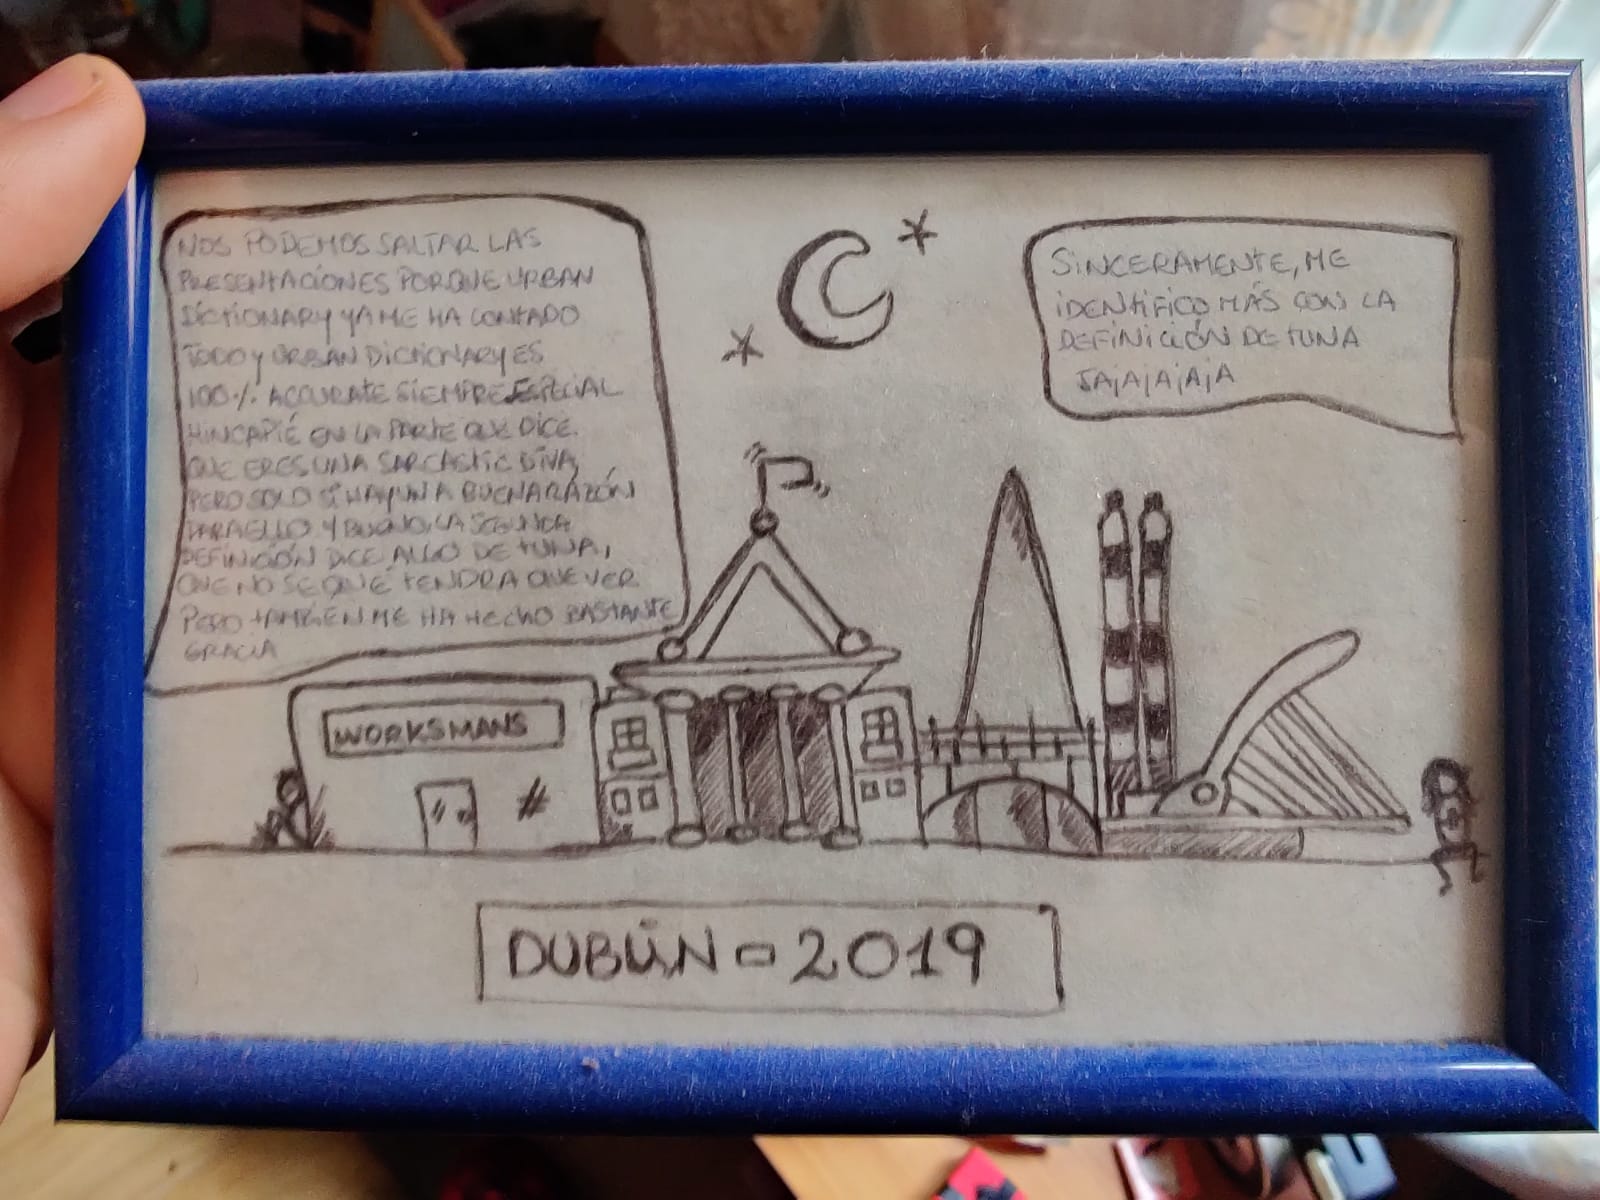 NOS PODEMOS SALTAR LAS
PRESENTACIONES PORQUE URBAN
DICTIONARY YA ME HA CONTADO
TODO Y URBAN DICTIONARY ES
100% ACCURATE SIEMPRE ESPECIAL
HINCAPIÉ EN LA PARTE QUE DICE
QUE ERES UNA SARCASTIC DIVA,
PERO SOLO SI HAY UNA BUENA RAZÓN
PARA ELLO Y BUENO, LA SEGUNDA
DEFINICIÓN DICE ALGO DE TUNA,
QUE NO SE QUÉ TENDRA QUE VER
PERO TAMBIÉN ME HA HECHO BASTANTE
GRACIA
SINCERAMENTE, ME
IDENTIFICO MÁS CON LA
DEFINICIÓN DE TUNA
JAJAJAJAJA
WORKSMANS
DUBLÍN - 2019